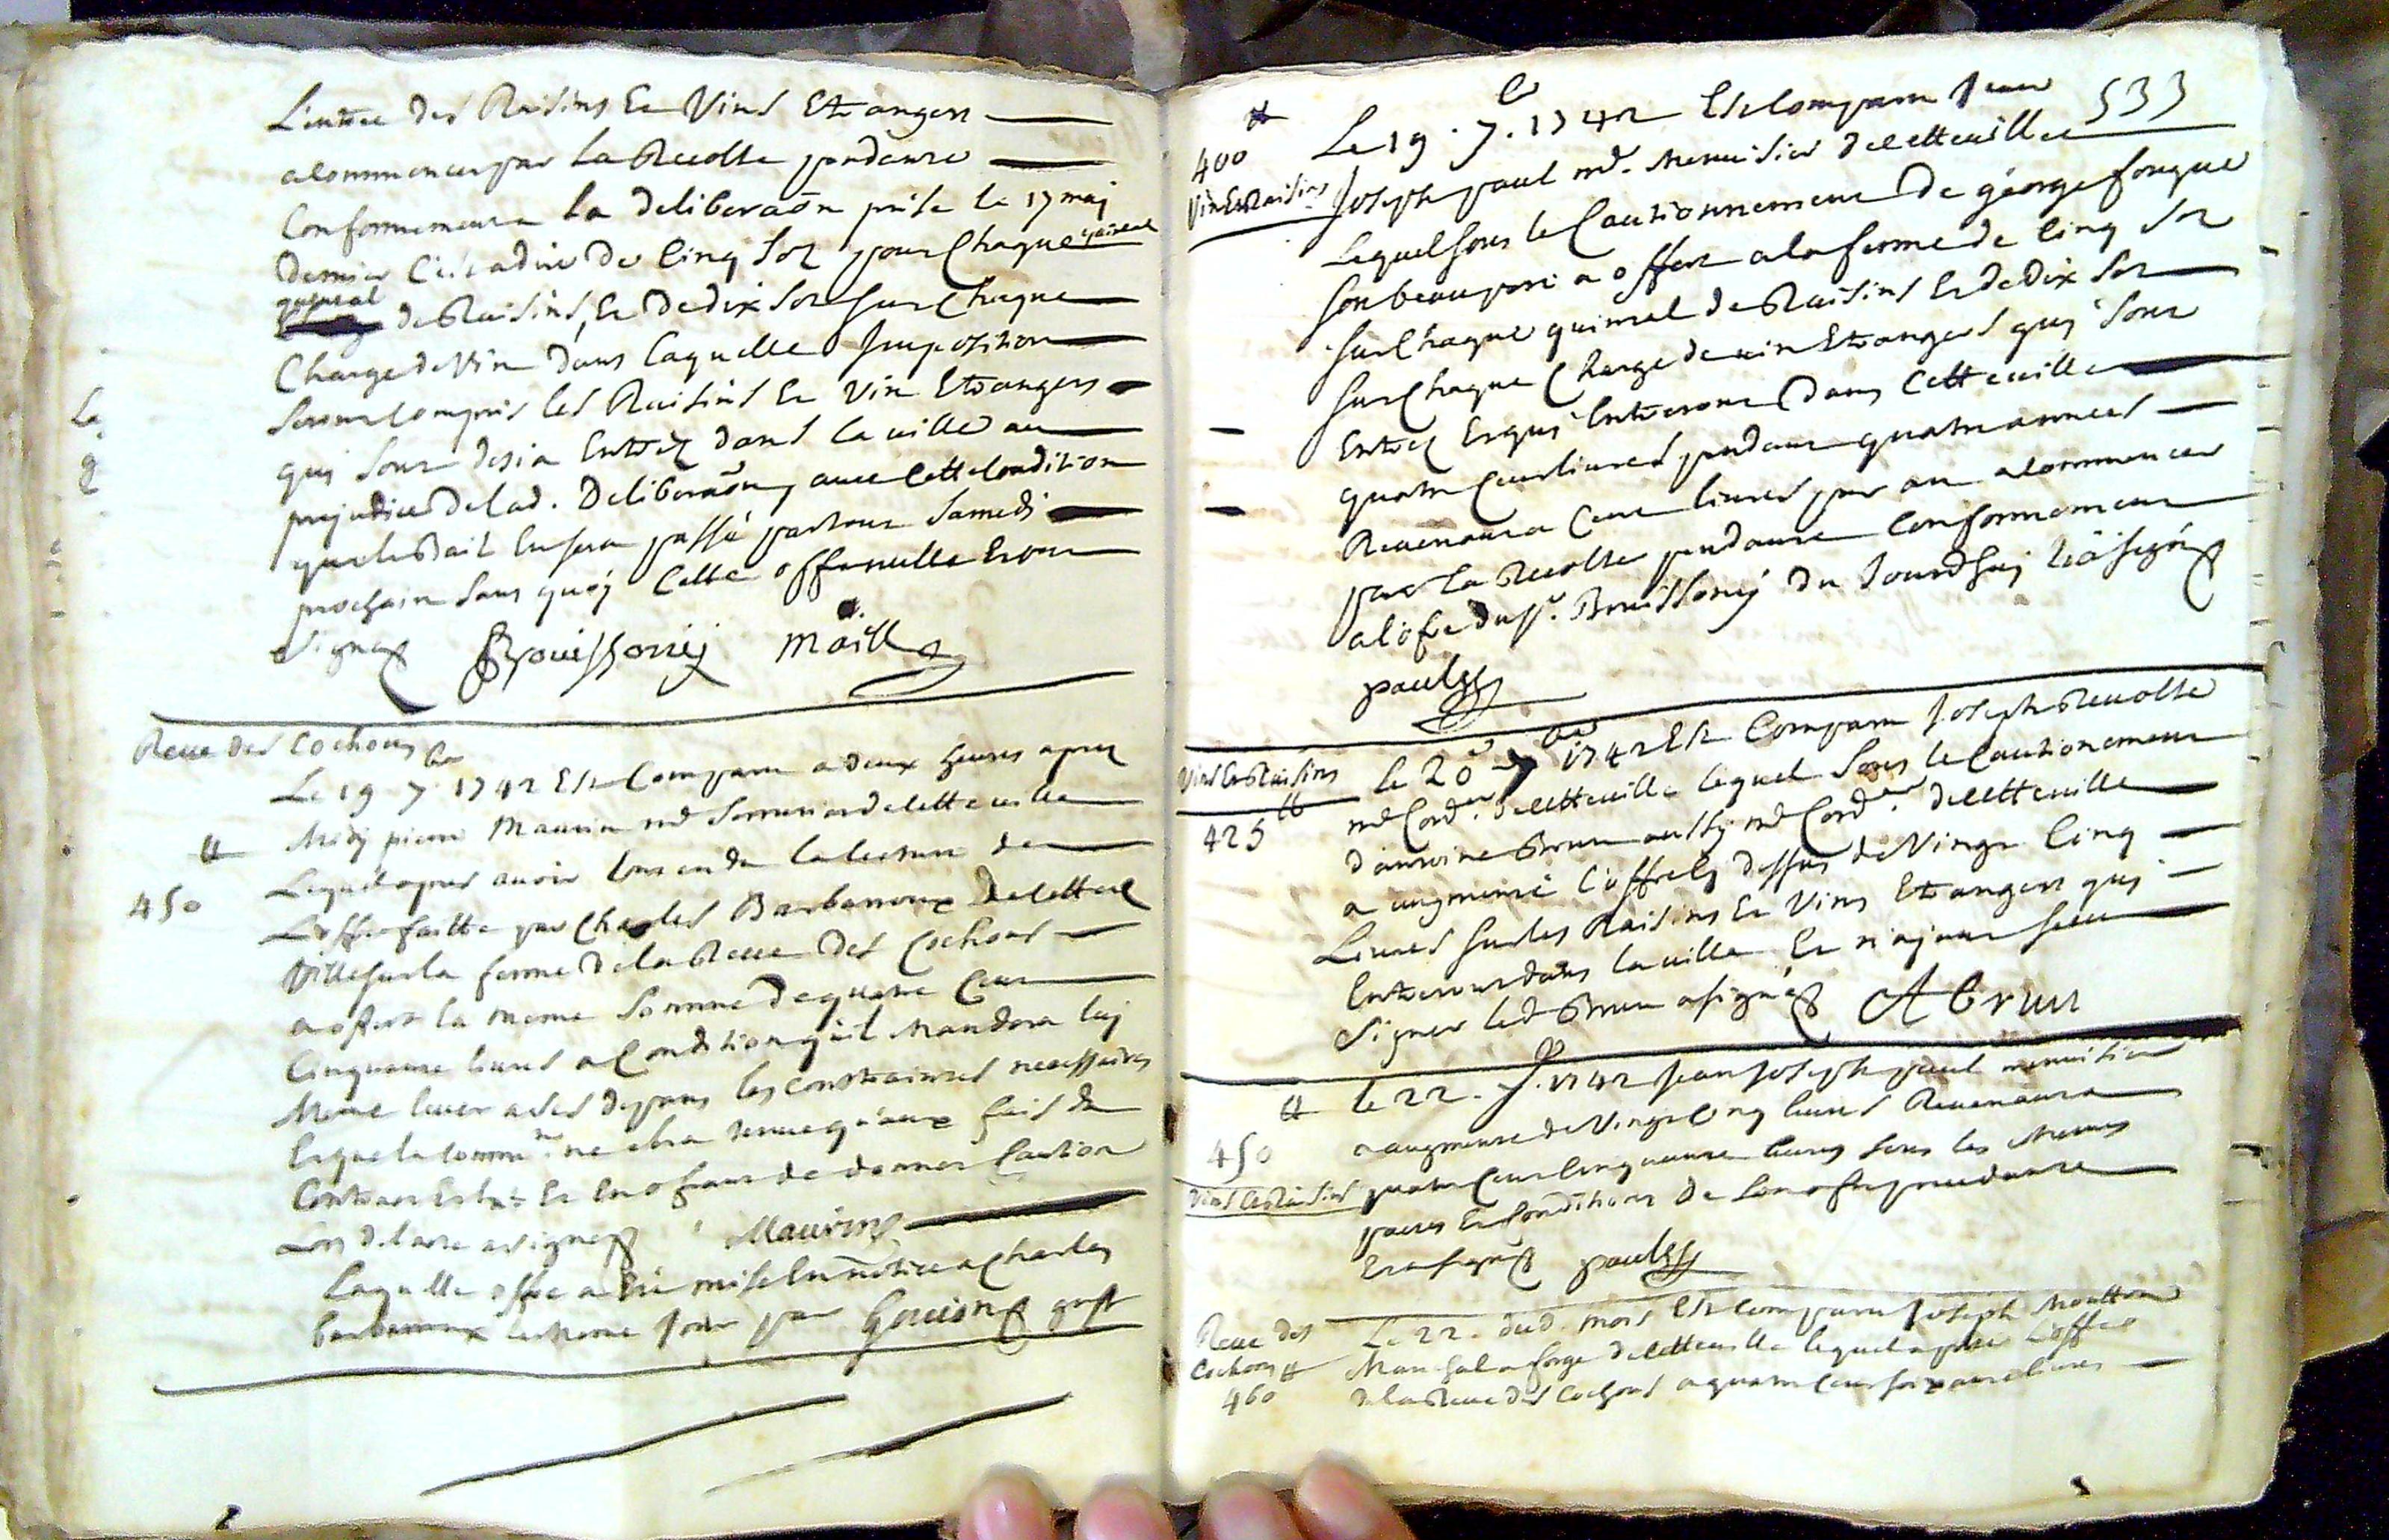 L'entrée des Raisins Et Vins Etrangers
a commencer par la Recolte pendante
Conformement a la deliberaõn prise le 17 may
dernier C'est a dire de Cinq Sol pour Chaque quintal
quintal de Raisins, Et de dix Sol sur Chaque
Charge de Vin dans laquelle Imposition
Seront Compris les Raisins Et Vin Etrangers
quj Sont desia Entrez dans la ville au
prejudice de lad. Deliberaõn, avec Cette Condition
que le Bail En sera passé partout Samedi
prochain Sans quoj Cette offre nulle Et ont
Signez Bouissonj Maille
Reve des Cochons
Le 19 7bre 1742 Est Comparu a deux heures apres
Midj pierre Maurin md de cette ville
tt
450
Lequel apres avoir Entendu la lecture de
L'offre faitte par Charles Barbaroux de cette
Ville sur la ferme de la Reve des Cochons
a offert la meme Somme de quatre Cent
Cinquante livres a Condition qu'il Mandera luj
Meme lever a Ses depans les Contraintes necessaires
Et que la Commté. ne Sera tenue qu'aux frais du
Contrat Et Extt Et En offrant de donner Caution
Lors de l'acte a signe Maurin
Laquelle offre a Eté mise En notice a Charles
barbaroux le meme Jour par Gouion greff
533
tt
400
Vin Et Raisins
Le 19. 7bre. 1742 Est Comparu Jean
Joseph paul md. Menuisier de cette ville
Lequel sous le Cautionnement de george fouque
son beaupere a offert a la ferme de Cinq Sol
sur Chaque quintal de Raisins Et de dix Sol
sur Chaque Charge de vin Etrangers quj Sont
Entrez Et quj Entreront dans Cette ville
quatre Cent livres pendant quatre années
Revenant a Cent livres par an a Commencer
par la Recolte pendante Conformement
a l'ofre du Sr. Bouissonj du Jourdhuj Et a signé
paul
Vins Et Raisins
tt
425
le 20e 7bre 1742 Est Comparu Joseph Revolte
md Cordr. de cette ville lequel Sous le Cautionement
d'antoine Brun aussy md Cordr. de cette ville
a augmenté l'offre Cy dessus de Vingt Cinq
Livres sur les Raisins Et Vins Etrangers quj
Entreront dans la ville Et n'ayant sceu
Signer led Brun a signé ABrun
tt
450
Vins Et Raisins
le 22. 7bre. 1742 Jean Joseph paul menuisier
a augmenté de Vingt Cinq livres Revenant a
quatre Cent Cinquante livres Sous les Memes
pactes Et Conditions de Son ofre precedante
Et a signé paul
Reve des
Cochons tt
460
Le 22. dud. mois Est Comparu Joseph Moutton
Marchal a forge de cette ville lequel a porté L'offre
de la Reve des Cochons a quatre Cent soixante livres